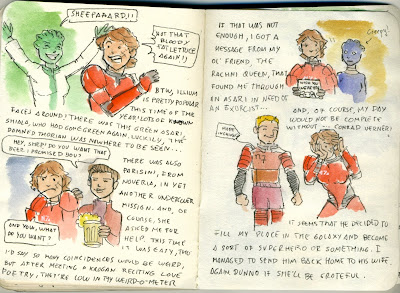 SHEEPAAARD!!
NOT THAT
BLOODY
FAT LETTUCE
AGAIN!!
BTW, ILLIUM
IS PRETTY POPULAR
THIS TIME OF THE
YEAR! LOTS OF KNOWN
FACES AROUND! THERE WAS THIS GREEN ASARI,
SHIALA, WHO HAD GONE GREEN AGAIN. LUCKILY, THE
DOMNED THORIAN WAS NOWHERE TO BE SEEN...
HEY, SHEP! DO YOU WANT THAT
BEER I PROMISED YOU?
AND YOU, WHAT
DO YOU WANT?
THERE WAS ALSO
PARISINI, FROM
NOVERIA, IN YET
ANOTHER UNDERCOVER
MISSION. AND, OF
COURSE, SHE
ASKED ME FOR
HELP. THIS TIME
IT WAS EASY, TOO
I'D SAY SO MANY COINCIDENCES WOULD BE WEIRD,
BUT AFTER MEETING A KROGAN RECITING LOVE
POETRY, THEY'RE LOW IN MY WEIRD-O-METER
IF THAT WAS NOT
ENOUGH, I GOT A
MESSAGE FROM MY
OL' FRIEND, THE
RACHNI QUEEN, THAT
FOUND ME THROUGH
AN ASARI IN NEED OF
AN EXORCIST...
Creepy!
AND, OF COURSE, MY DAY
WOULD NOT BE COMPLETE
WITHOUT... CONRAD VERNER!
IT SEEMS THAT HE DECIDED TO
FILL MY PLACE IN THE GALAXY AND BECOME
A SORT OF SUPERHERO OR SOMETHING. I
MANAGED TO SEND HIM BACK HOME TO HIS WIFE
AGAIN. DUNNO IF SHE'LL BE GRATEFUL.